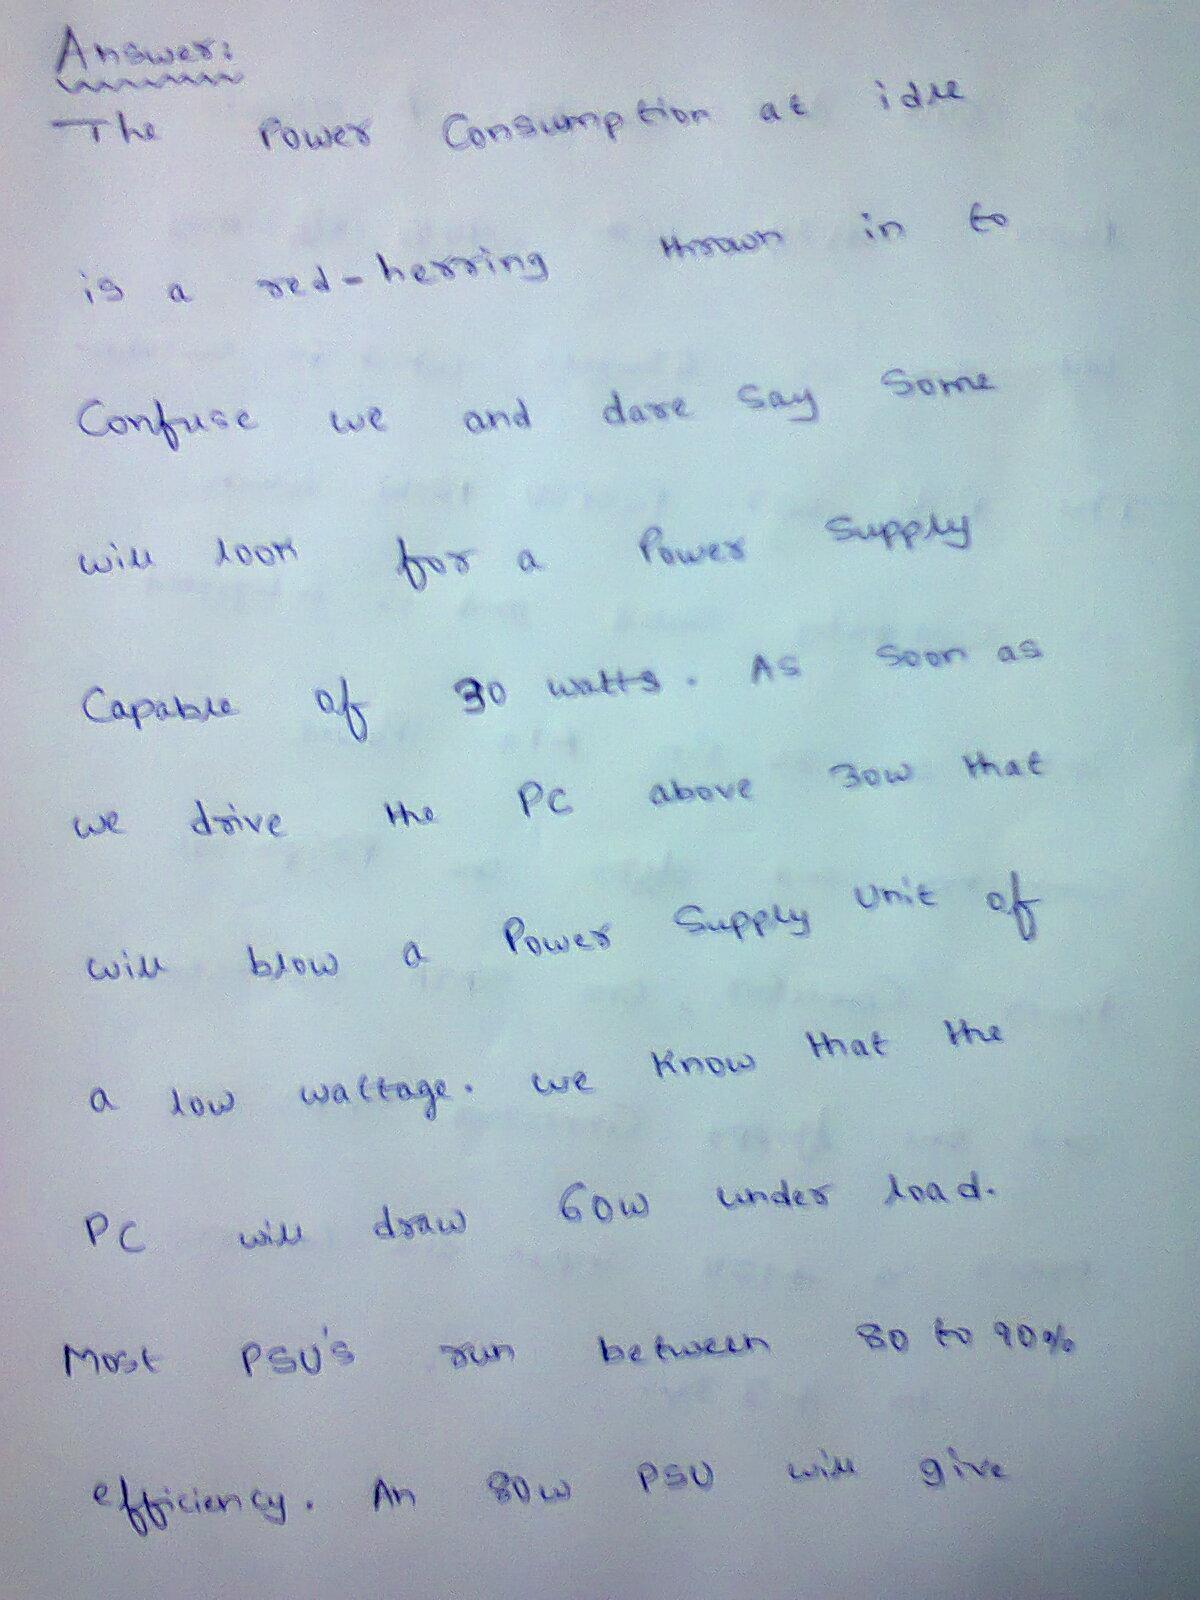 Answer:
The Power Consumption at idle
is a red-herring thrown in to
Confuse we and dare say some
will look for a Power Supply
Capable of 30 watts. As soon as
we drive the PC above 30w that
will blow a Power Supply unit of
a low wattage. we know that the
PC will draw 60w under load.
Most PSU's run between 80 to 90%
efficiency. An 80w PSU will give